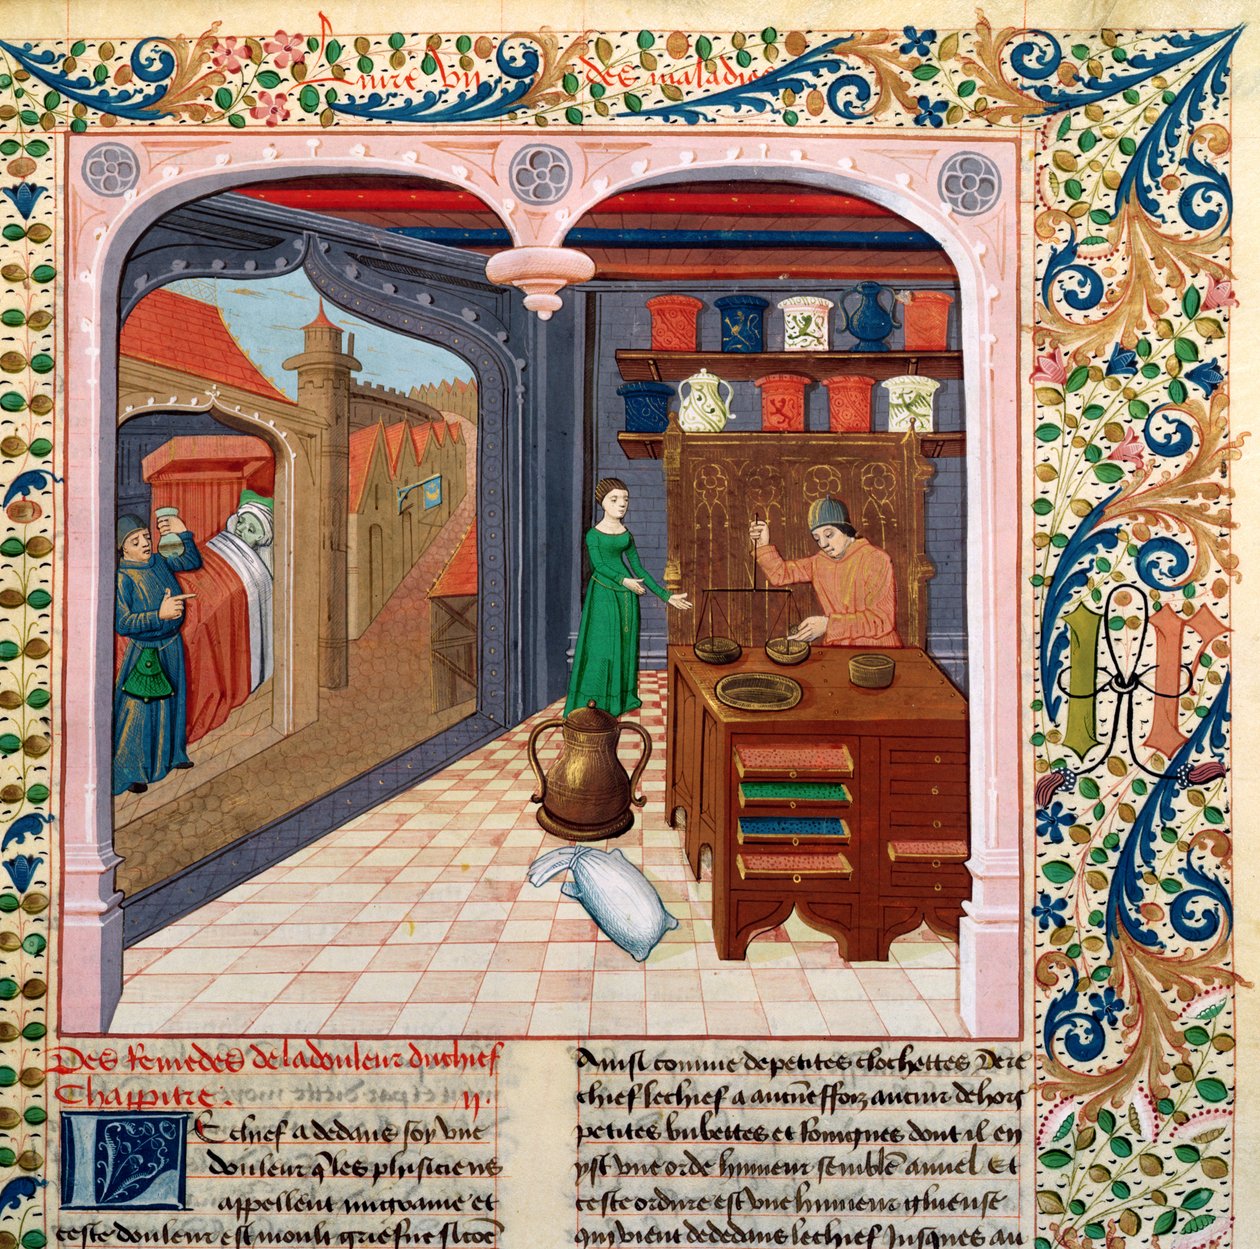 Liure vii des maladies
Des Remedes de la douleur du chief
Chappitre. ii.
LE chief a dedans soy vne
douleur q̃ les phisiciens
appellent migraine et
ceste douleur est moult griefue sicõe
Ainsi comme de petites clochettes Dere
chief le chief a aucũeffoiz au cuir dehors
petites bubettes et Rouges dont il en
yst vne orde humeur semblẽ a miel Et
ceste ordure est vne humeur gluense
qui vient de dedans le chief Jusques au